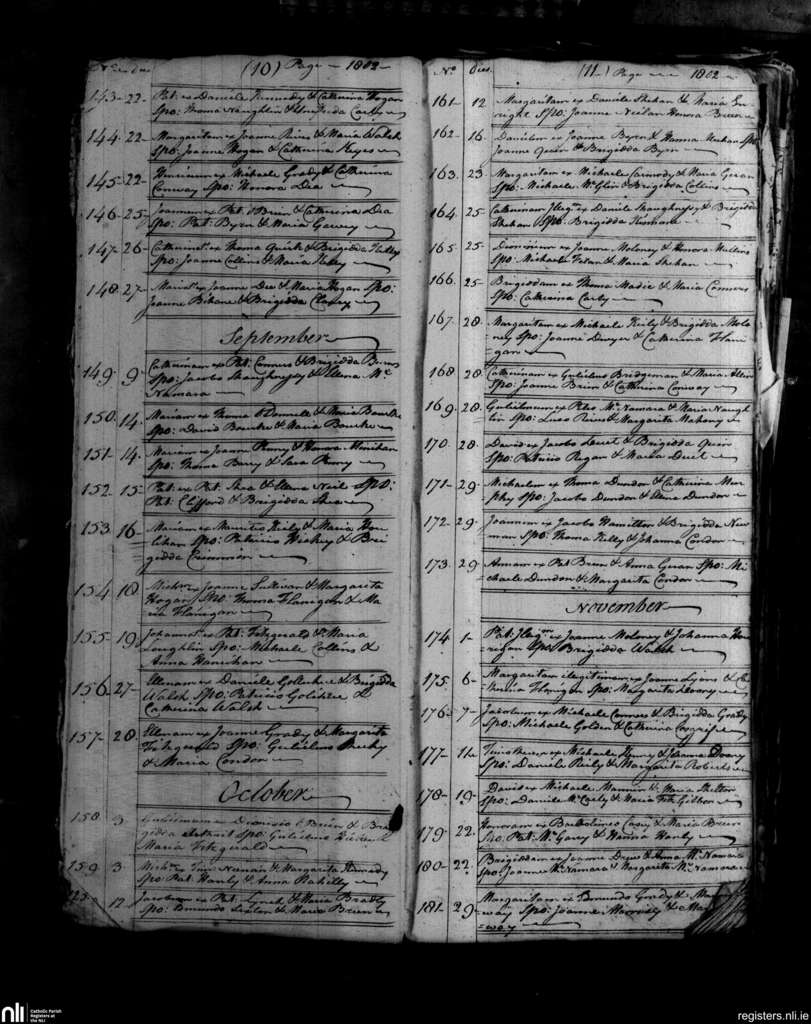 No. dies (10) Page - 1802 -
143 - 22 - Pat. ex Daniele Kennedy & Catherina Hogan
Spo: Thoma Naughlin &
144 - 22 - Margaritam ex Joanne Rieves & Maria Walsh
Spo: Joanne Hogan & Catherina Keyes
145 - 22 - Honoriam ex Michaele Grady & Catherina
Conway Spo: Honora Dea
146 - 25 - Joannem ex Pat. O'Brien & Catherina Dea
Spo: Pat: Byrn & Maria
147 - 26 - Catherinam ex Thoma Quirk & Brigidda Kelly
Spo: Joanne Collins & Maria Kelly
148 - 27 - Mariam ex Joanne Dee & Maria Hogan Spo:
Joanne Bihane & Brigidda Clancy
September
149 - 9 - Catherinam ex Pat: Connors & Brigidda
Spo: Jacobo Shaughnessy & Elena Mc
Namara
150 - 14. Mariam ex Thoma O'Donnele & Maria Bourke
Spo: David Bourke & Maria Bourke
151 - 14. Mariam ex Joanne Penny & Honora Minihan
Spo: Thoma Barry & Sara Penny
152 - 15 - Pat. ex Pat. Shea & Elena Neil Spo:
Pat: Clifford & Brigidda Shea
153 - 16 - Mariam ex Mauritio Kiely & Maria Hou-
lihan Spo: Patricio Hickey & Bri-
gidda Crimmin
154 - 18 Michm. ex Joanne Sullivan & Margarita
Hogan Spo: Thoma Flanigan & Ma-
ria Flanigan
155 - 19 Johannam ex Pat: Fitzgerald & Maria
Loughlin Spo: Michaele Collins &
Anna Hanrihan
156 - 27 - Ellenam ex Daniele Golicher & Brigidda
Walsh Spo: Patricio Golicher &
Catherina Walsh
157 - 28 Ellenam ex Joanne Grady & Margarita
Fitzgerald Spo: Gulielmo
& Maria Condon
October
158 3 Gulielmum ex Dionisio O'Brien & Bri-
gidda Spo: Gulielmo
Maria Fitzgerald
159 3 Michm. ex Tim: Neenan & Margarita Kennedy
Spo: Pat: Hanly & Anna Rahilly
12 Jacobum ex Pat: Lynch & Maria Bradly
Spo: Edmundo & Maria Brien
No. Dies. (11) Page - 1802 -
161 - 12 Margaritam ex Daniele Shehan & Maria En-
right Spo: Joanne Neilan Honora Brien
162 - 16. Danielem ex Joanne Byrn & Hanna Meehan Spo
Joanne Quin & Brigidda Byrn
163. 23 Margaritam ex Michaele Carmody & Maria Geran
Spo: Michaele McGlin & Brigidda Collins
164. 25 - Catherinam Illegm. ex Daniele Shaughnessy & Brigidda
Shehan Spo: Brigidda Kinnane
165 - 25 - Dionisium ex Joanne Moloney & Honora Mullins
Spo: Michaele & Maria Shehan
166. 25 - Brigiddam ex Thoma Madic & Maria Connors
Spo: Catherina Carty
167 - 28 Margaritam ex Michaele Kiely & Brigidda Molo-
ney Spo: Joanne Dwyer & Catherina Flani-
gan
168 28 Catherinam ex Gulielmo Bridgeman & Maria Allen
Spo: Joanne Brien & Catherina Conway
169. 28. Gulielmum ex Petro McNamara & Maria Naugh-
lin Spo: Luca Rieves & Margarita Mahony
170. 28. David ex Jacobo Deuil & Brigidda Quin
Spo: Patricio Regan & Maria Deuil
171 - 29 Michaelem ex Thoma Dundon & Catherina Mur-
phy Spo: Jacobo Dundon & Elena Dundon
172 - 29. Joannem ex Jacobo Hamilton & Brigidda New-
man Spo: Thoma Kelly & Johanna Condon
173. 29 Annam ex Pat Brien & Anna Geran Spo: Mi-
chaele Dundon & Margarita Condon
November
174 1 - Pat: Illegm. ex Joanne Moloney & Johanna Hou-
Spo: Brigidda Walsh
175 6 - Margaritam illegitimam ex Joanne Lyons & Ca-
therina Flanigan Spo: Margarita
176 - 7 - Jacobum ex Michaele Connors & Brigidda Grady
Spo: Michaele Golden & Catherina Cosgriff
177 - 11. Timotheum ex Michaele & Joanna
Spo: Daniele Kiely & Margarita Roberts
178 - 19 - David ex Michaele Mannin & Maria Shelton
Spo: Daniele McCarty & Maria Fitz Gibbon
179. 22. Honoram ex Bartholomeo Casey & Maria Brien
Spo: Pat: McGarry & Hanna Hanly
180 - 22. Brigiddam ex Joanne Drew & Anna McNamara
Spo: Joanne McNamara & Margarita McNamara
181 - 29 Margaritam ex Edmundo Grady &
way Spo: Joanne &
way
nli
Catholic Parish
Registers at
the NLI
registers.nli.ie